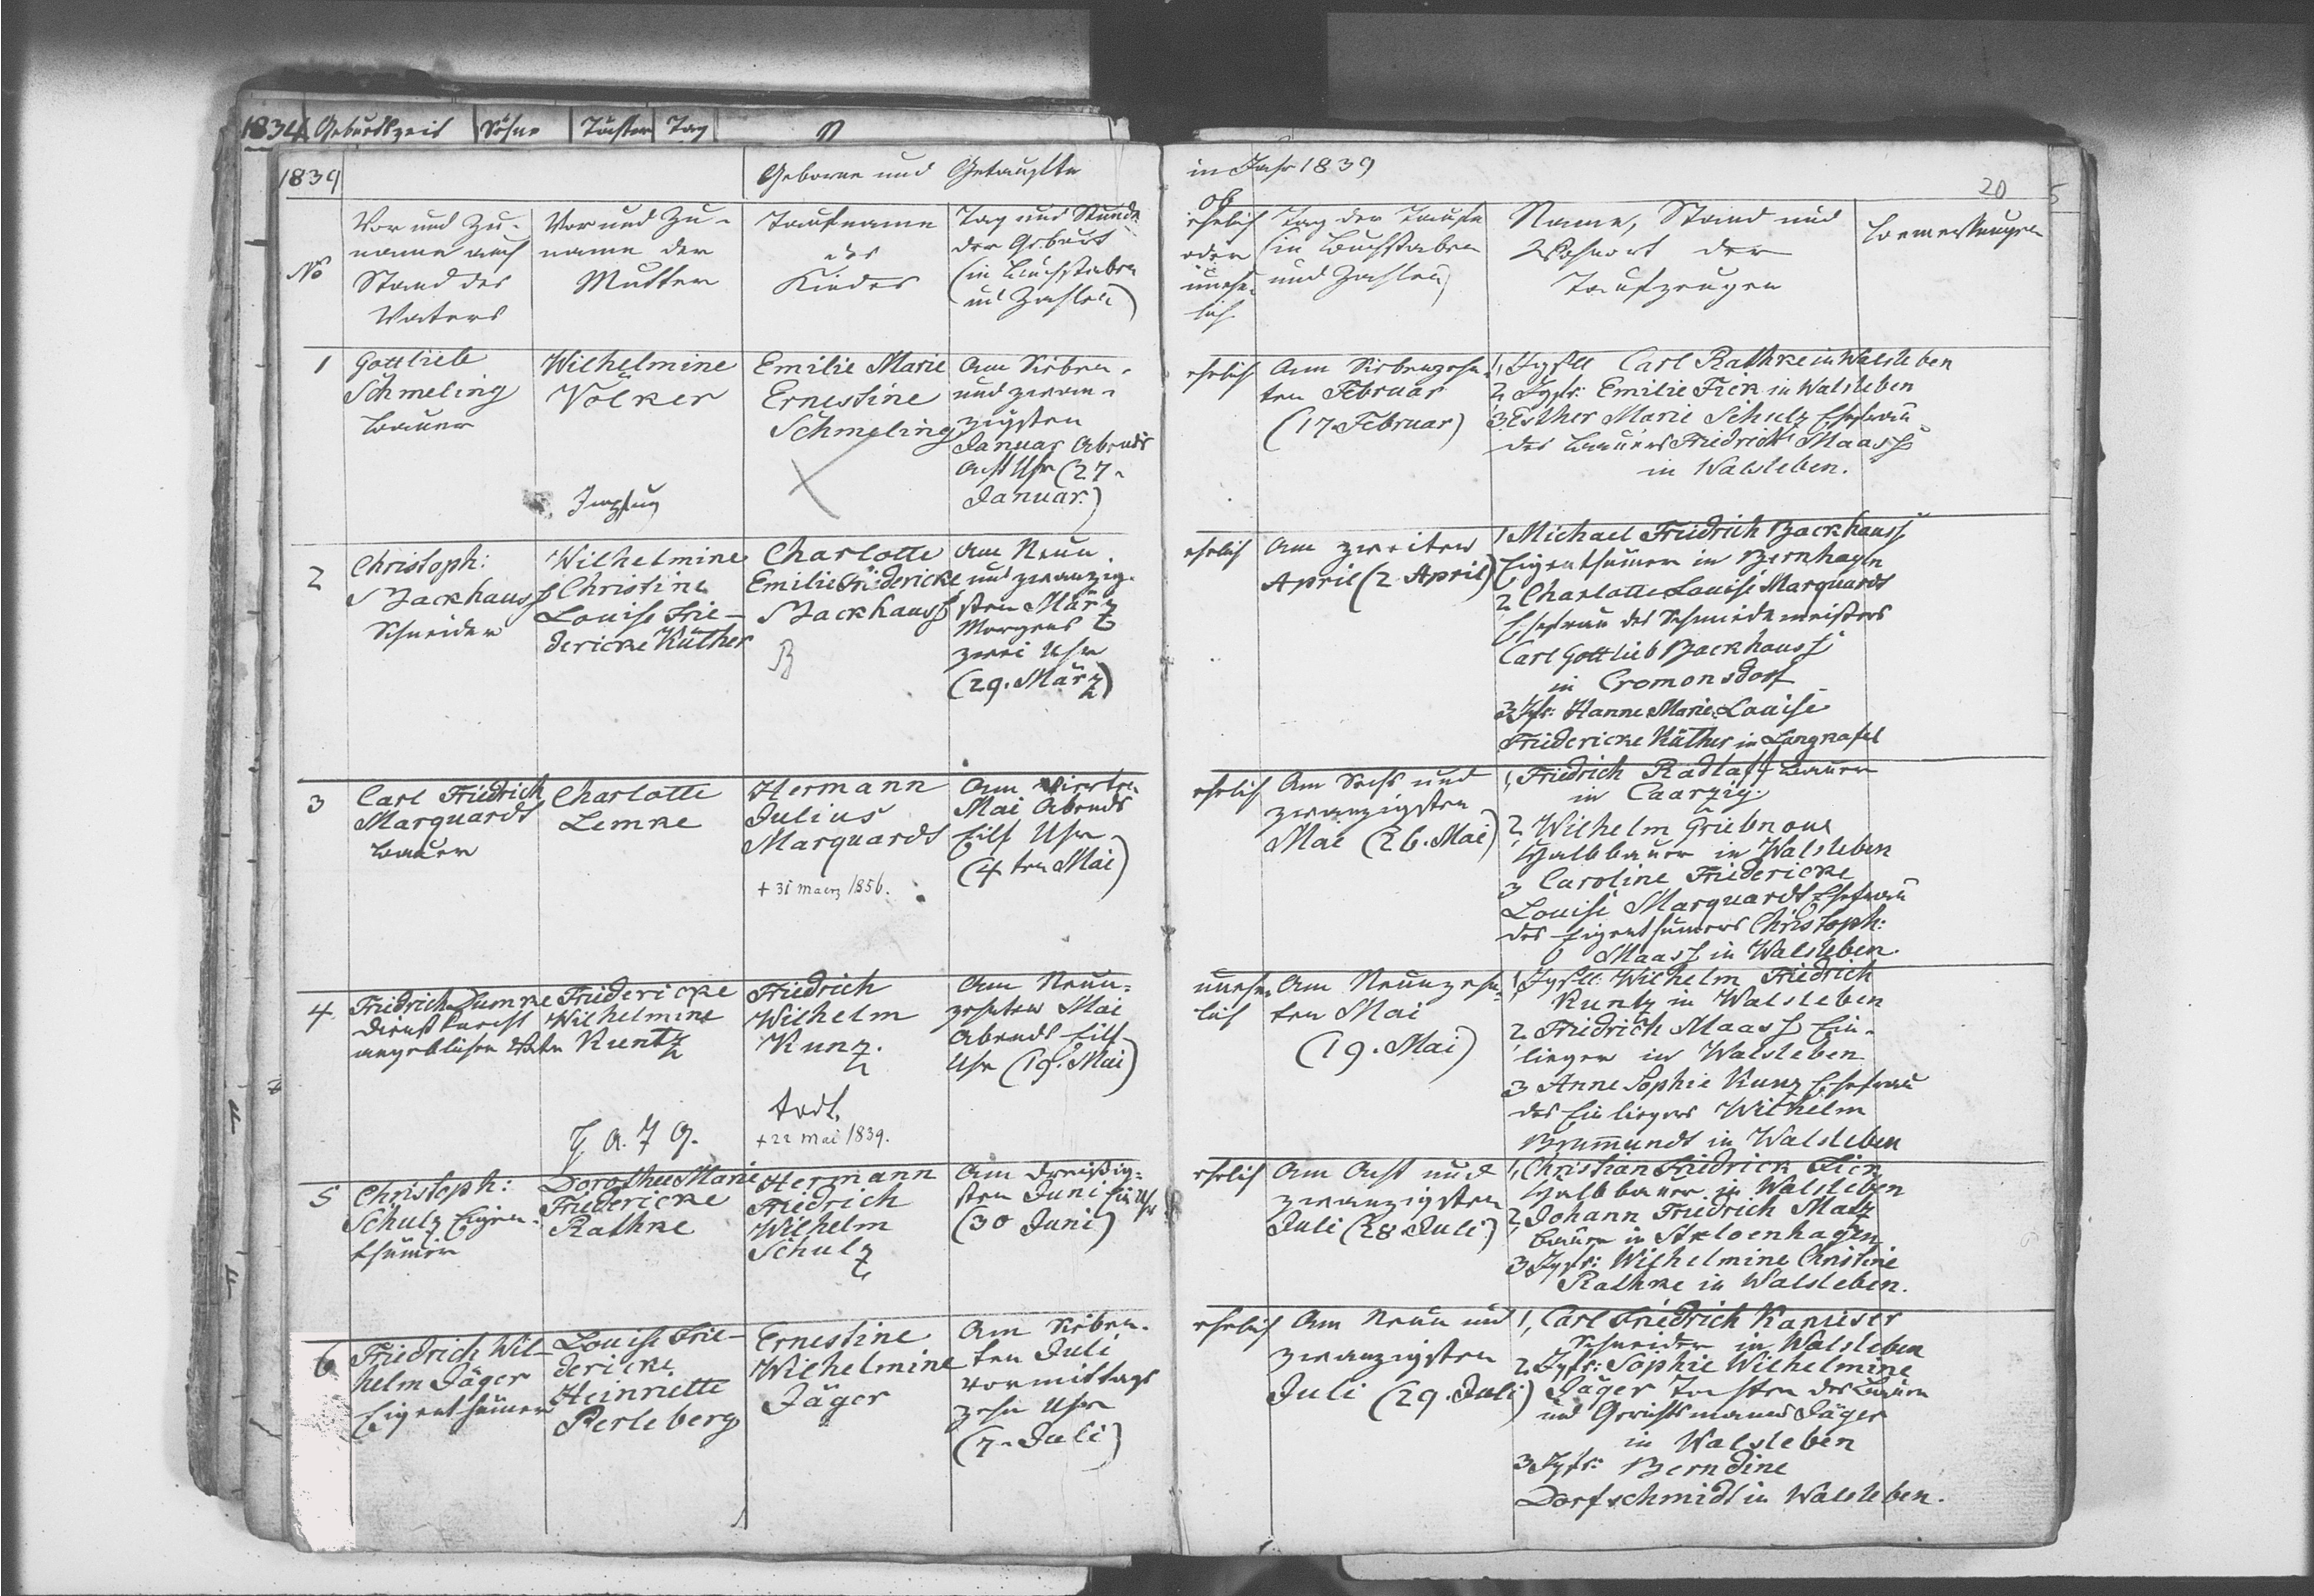 1834 Geburtszeit Söhne Töchter Tag
1839
Geborne und Getaufte
Vor und Zu-
name auch
Stand des
Vaters
No
Vor und Zu-
name der
Mutter
Taufname
des
Kindes
Tag und Stunde
der Geburt
(in Buchstaben
und Zahlen)
1
Gottlieb
Schmeling
Bauer
Wilhelmine
Völker
Emilie Marie
Ernestine
Schmeling
Am Sieben-
und zwan-
zigsten
Januar Abends
Acht Uhr (27
Januar.)
2
Christoph:
Backhauss
Schneider
Wilhelmine
Christine
Louise Frie-
dericke Küther
Charlotte
Emilie Friedericke
Backhauss
Am Neun
und zwanzig-
sten März
Morgens
zwei Uhr
(29. März)
3
Carl Friedrich
Marquardt
Bauer
Charlotte
Lemke
Hermann
Julius
Marquardt
+ 31 maerz 1856.
Am vierten
Mai Abends
Eilf Uhr
(4ten Mai)
4
Friedrich Lumke
Dienstknecht
angeblicher Vater
Friedericke
Wilhelmine
Kuntz
Friedrich
Wilhelm
Kunz.
todt.
+ 22 Mai 1839.
Am Neun-
zehnten Mai
Abends Eilf
Uhr (19. Mai)
5
Christoph:
Schulz Eigen-
thümer
Dorothee Marie
Friedericke
Rathke
Hermann
Friedrich
Wilhelm
Schulz
Am dreißig-
sten Juni
(30 Juni)
6
Friedrich Wil-
helm Jäger
Eigenthümer
Louise Frie-
dericke
Heinriette
Perleberg
Ernestine
Wilhelmine
Jäger
Am Sieben-
ten Juli
Vormittags
zehn Uhr
(7. Juli)
im Jahr 1839
20
ob
ehelich
oder
unehe-
lich
Tag der Taufe
(in Buchstaben
und Zahlen)
Name, Stand und
Wohnort der
Taufzeugen
Bemerkungen
ehelich
Am Siebenzehn-
ten Februar
(17 Februar)
1, Jgsll Carl Rathke in Walsleben
2, Jgfr: Emilie Fick in Walsleben
3, Esther Marie Schulz Ehefrau
des Bauers Friedrich Maass
in Walsleben.
ehelich
Am zweiten
April (2 April)
1 Michael Friedrich Backhauss
Eigenthümer in Bernhagen
2, Charlotte Louise Marquardt
Ehefrau des Schmiedemeisters
Carl Gottlieb Backhauss
in Cromonsdorf
3 Jgfr: Hanne Marie Louise
Friedericke Küther in Langkafel
ehelich
Am Sechs und
zwanzigsten
Mai (26. Mai)
1, Friedrich Radlaff Bauer
in Caarzig.
2, Wilhelm Griebnow
Halbbauer in Walsleben
3 Caroline Friedericke
Louise Marquardt Ehefrau
des Eigenthümers Christoph:
Maass in Walsleben.
unehe-
lich
Am Neunzehn-
ten Mai
(19. Mai)
1, Jgsll: Wilhelm Friedrich
Kuntz in Walsleben
2, Friedrich Maass Ein-
lieger in Walsleben
3 Anne Sophie Kunz Ehefrau
des Einliegers Wilhelm
Brummundt in Walsleben
ehelich
Am Acht und
zwanzigsten
Juli (28 Juli)
1, Christian Friedrich Fick
Halbbauer in Walsleben
2, Johann Friedrich Matz
Bauer in Streloenhagen
3 Jgfr: Wilhelmine Christine
Rathke in Walsleben.
ehelich
Am Neun und
zwanzigsten
Juli (29. Juli)
1, Carl Friedrich Kanuser
Schneider in Walsleben
2 Jgfr: Sophie Wilhelmine
Jäger Tochter des Bauern
und Gerichtsmanns Jäger
in Walsleben
3 Jgfr: Berndine
Dorfschmidt in Walsleben.